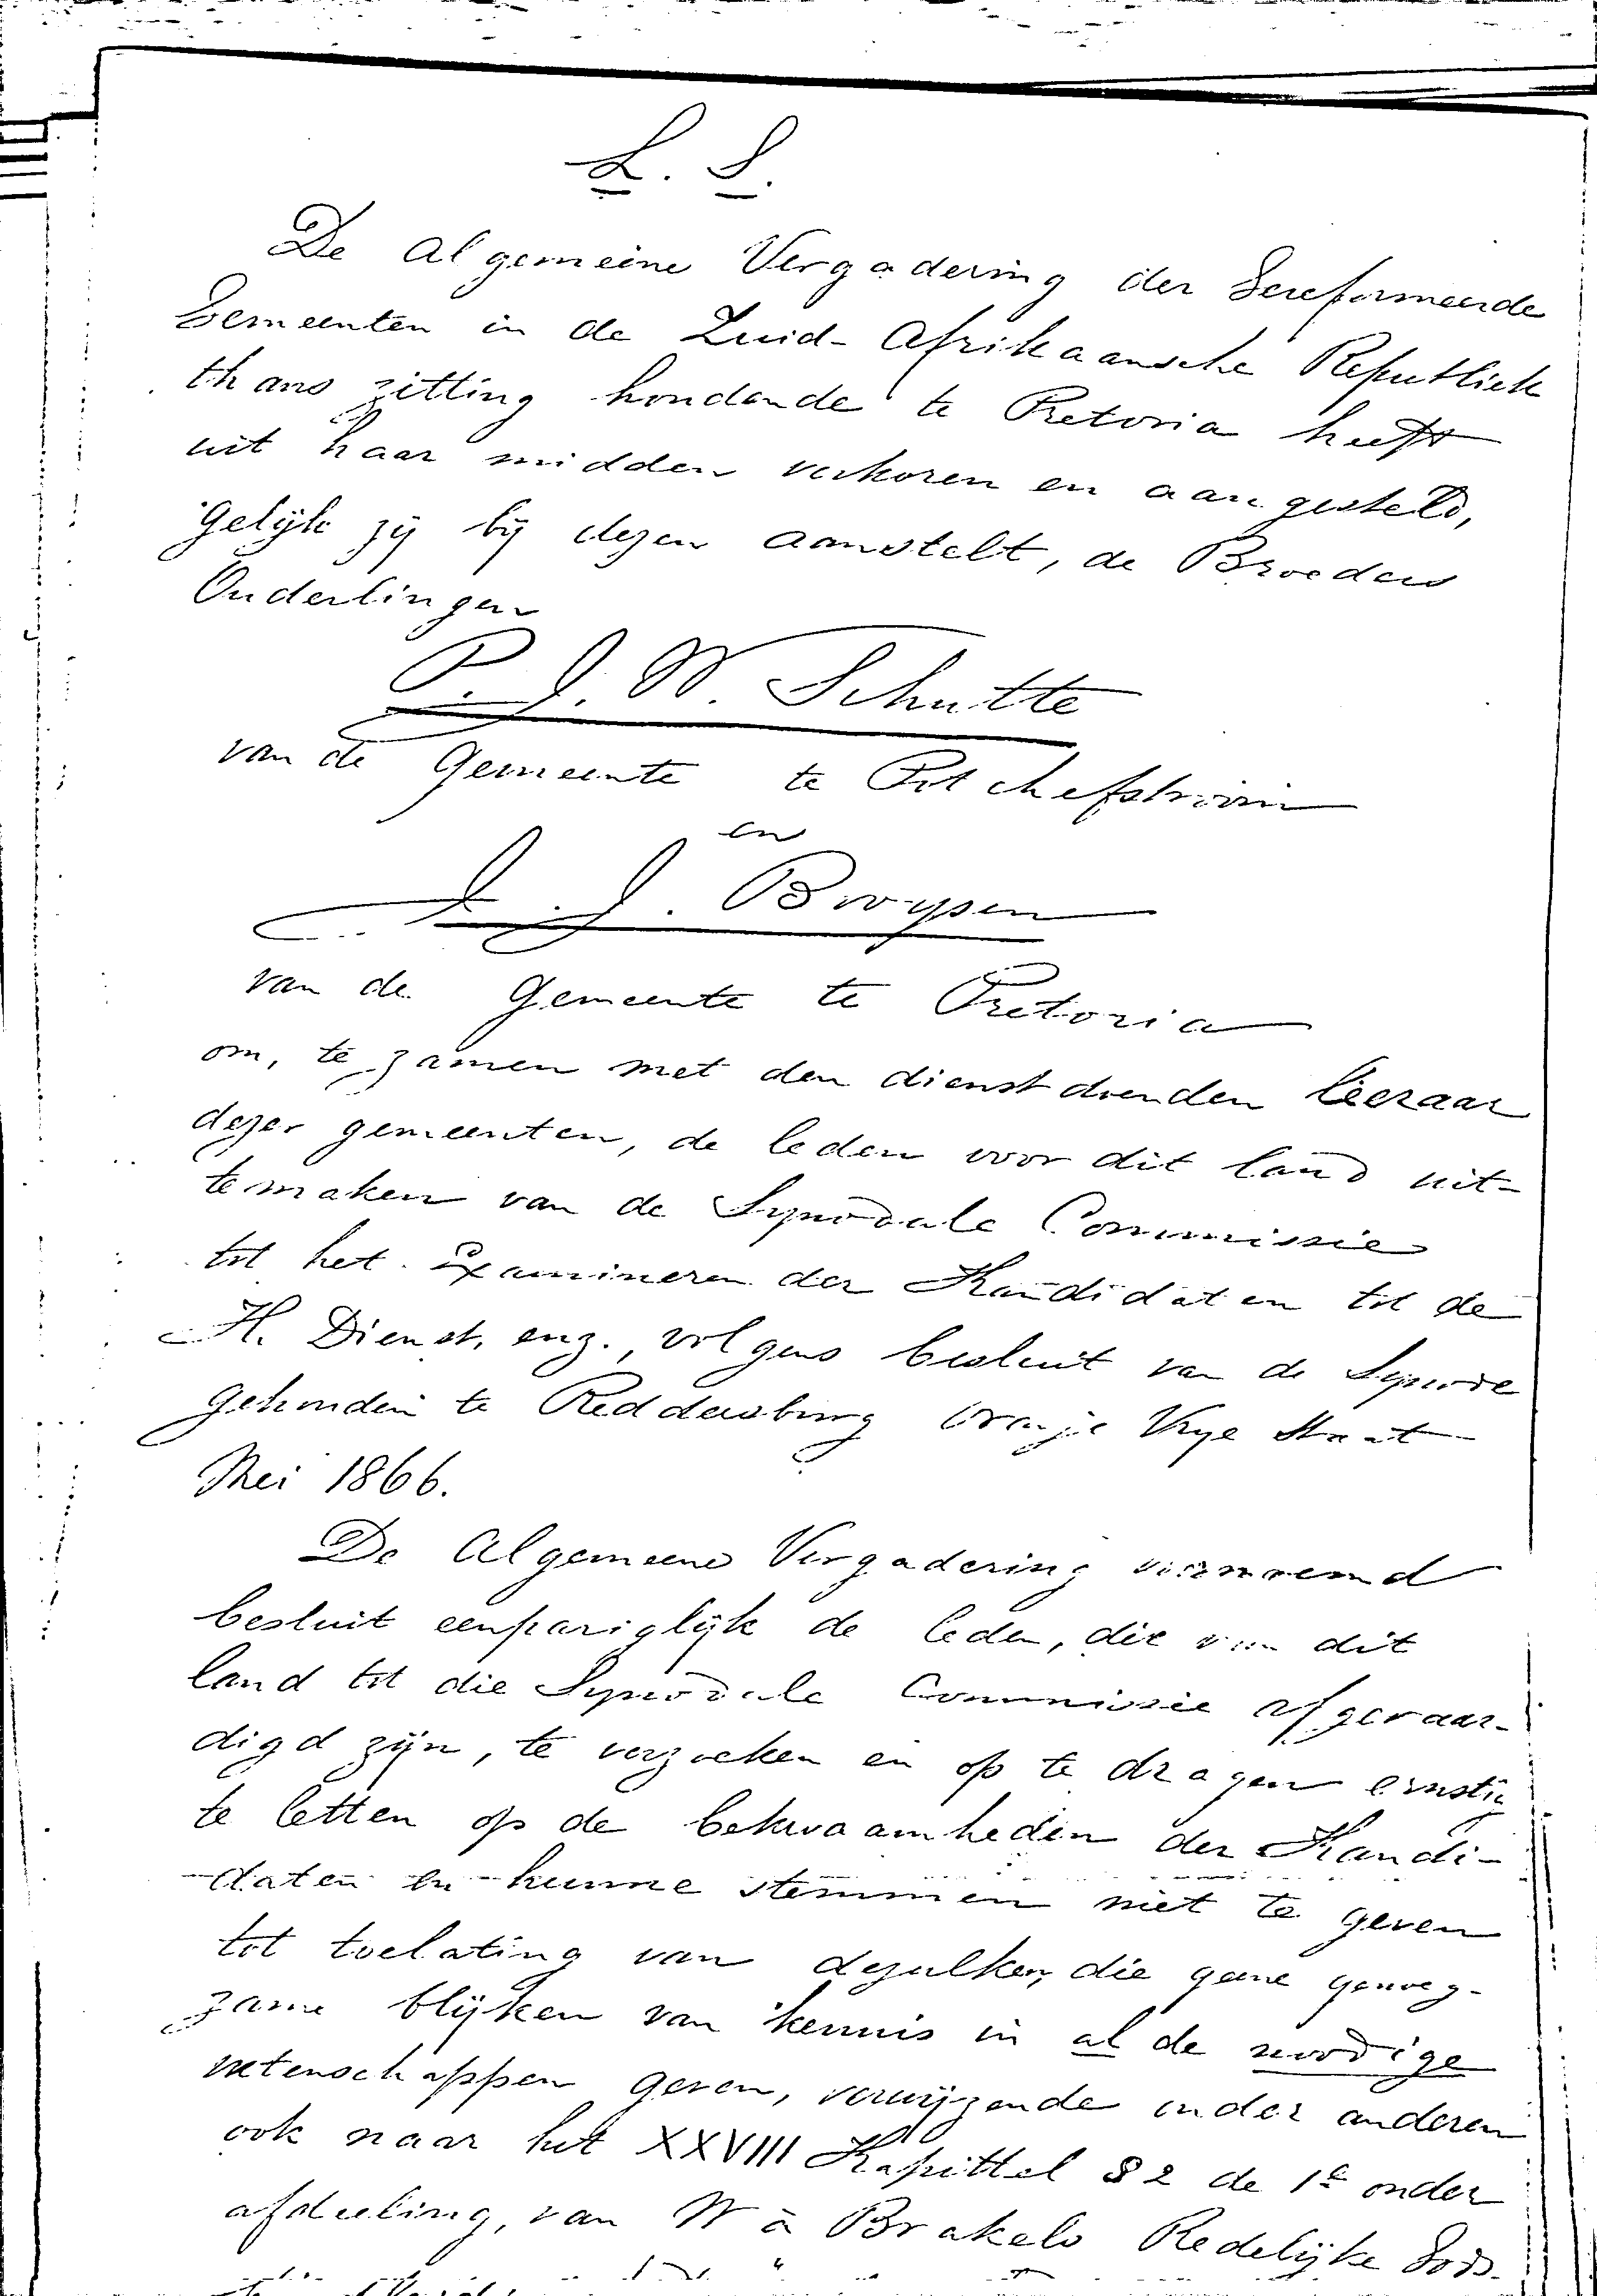 L. S.
De Algemeene Vergadering der Gereformeerde
Gemeenten in de Zuid-Afrikaansche Republiek
thans zitting houdende te Pretoria heeft
uit haar midden verkoren en aangesteld,
Gelijk zij bij dezen aanstelt, de Broeders
Ouderlingen
P. J. W. Schutte
van de Gemeente te Potchefstroom
en
J. J. Booysen
van de Gemeente te Pretoria
om, te zamen met den dienstdoenden leeraar
dezer gemeenten, de leden voor dit land uit-
temaken van de Synodale Commissie
tot het Examineren der Kandidaten tot de
H. Dienst, enz., volgens besluit van de Synode
gehouden te Reddersburg Oranje Vrye Staat
Mei 1866.
De Algemeene Vergadering voornoemd
besluit eenpariglijk de leden, die van dit
land tot die Synodale Commissie afgevaar-
digd zijn, te verzoeken en op te dragen ernstig
te letten op de bekwaamheden der Kandi-
daten en hunne stemmen niet te geven
tot toelating van dezulken, die geene genoeg-
zame blijken van kennis in al de noodige
wetenschappen geven, verwijzende onder anderen
ook naar het XXVIII Kapittel § 2 de 1e onder
afdeeling, van W à Brakels Redelijke Gods.